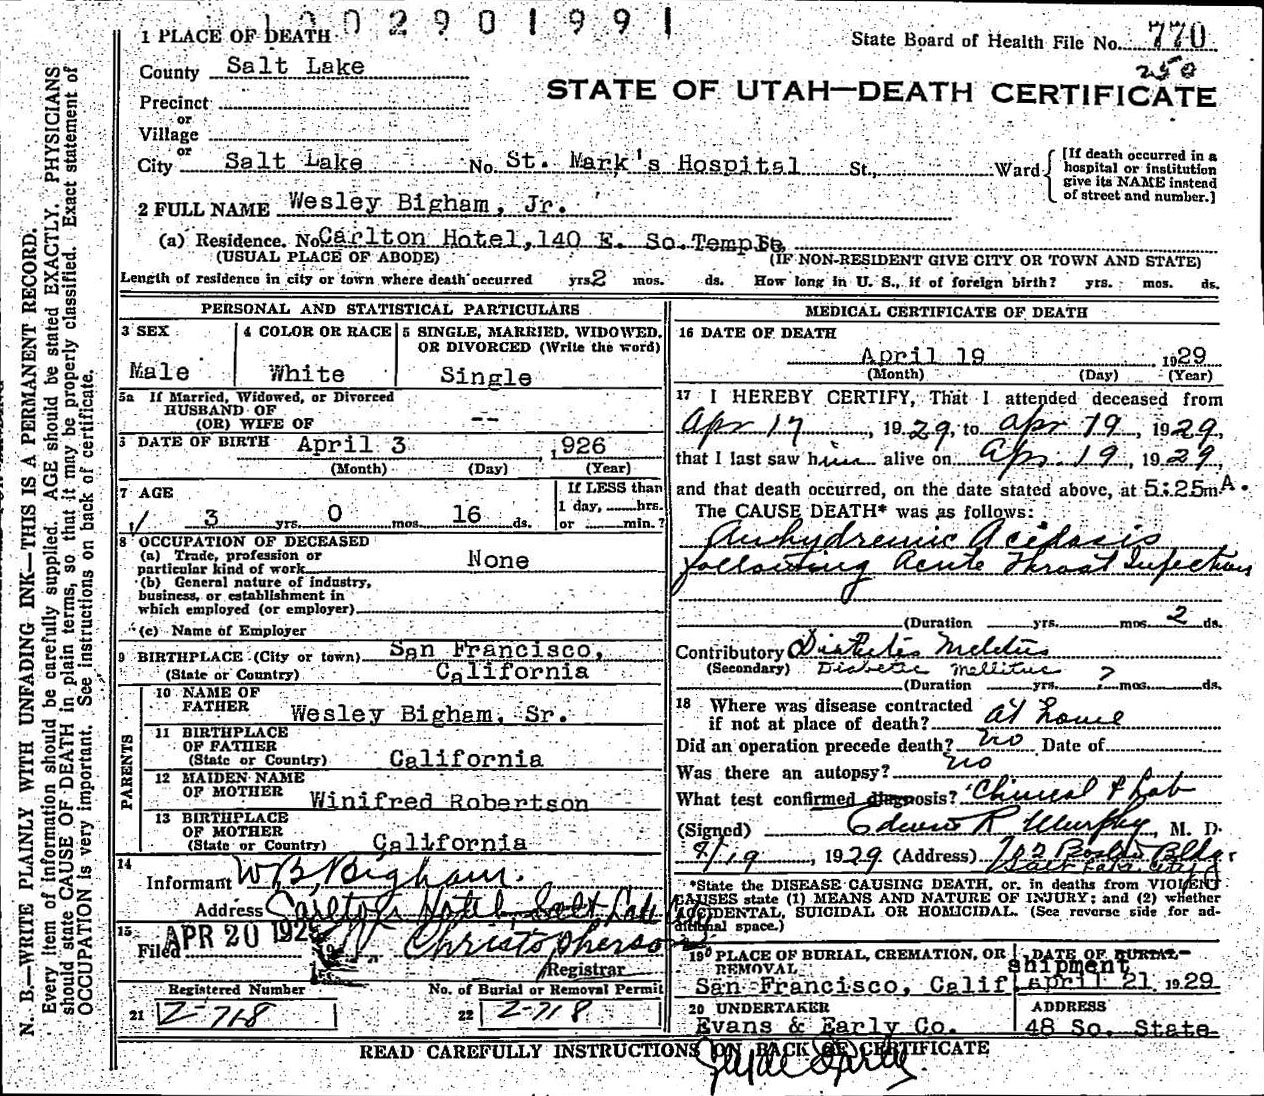 1002901991
1 PLACE OF DEATH
State Board of Health File No. 770
250
County Salt Lake
STATE OF UTAH—DEATH CERTIFICATE
Precinct
or
Village
or
City Salt Lake No. St. Mark's Hospital St., Ward
[If death occurred in a
hospital or institution
give its NAME instead
of street and number.]
2 FULL NAME Wesley Bigham, Jr.
(a) Residence. No. Carlton Hotel, 140 E. So. Temple
(USUAL PLACE OF ABODE) (IF NON-RESIDENT GIVE CITY OR TOWN AND STATE)
Length of residence in city or town where death occurred yrs. 2 mos. ds. How long in U. S., if of foreign birth? yrs. mos. ds.
PERSONAL AND STATISTICAL PARTICULARS
3 SEX
Male
4 COLOR OR RACE
White
5 SINGLE, MARRIED, WIDOWED,
OR DIVORCED (Write the word)
Single
5a If Married, Widowed, or Divorced
HUSBAND OF
(OR) WIFE OF --
6 DATE OF BIRTH April 3 , 1926
(Month) (Day) (Year)
7 AGE
3 yrs. 0 mos. 16 ds.
If LESS than
1 day, hrs.
or min.?
8 OCCUPATION OF DECEASED
(a) Trade, profession or
particular kind of work None
(b) General nature of industry,
business, or establishment in
which employed (or employer)
(c) Name of Employer
9 BIRTHPLACE (City or town) San Francisco,
(State or Country) California
PARENTS
10 NAME OF
FATHER Wesley Bigham, Sr.
11 BIRTHPLACE
OF FATHER
(State or Country) California
12 MAIDEN NAME
OF MOTHER Winifred Robertson
13 BIRTHPLACE
OF MOTHER
(State or Country) California
14
Informant W. B. Bigham.
Address Carlton Hotel, Salt Lake City
15
Filed APR 20 1929 Christopherson
Registrar
Registered Number No. of Burial or Removal Permit
21 Z-718 22 Z-718
MEDICAL CERTIFICATE OF DEATH
16 DATE OF DEATH
April 19 1929
(Month) (Day) (Year)
17 I HEREBY CERTIFY, That I attended deceased from
Apr 17, 1929, to Apr 19, 1929,
that I last saw him alive on Apr. 19, 1929,
and that death occurred, on the date stated above, at 5:25 m A.
The CAUSE DEATH* was as follows:
Anhydremic Acidosis
following Acute Throat Infection
(Duration yrs. mos. 2 ds.
Contributory Diabetes Mellitus
(Secondary) Diabetic Mellitus
(Duration yrs. ? mos. ds.
18 Where was disease contracted
if not at place of death? At home
Did an operation precede death? no Date of
Was there an autopsy? no
What test confirmed diagnosis? Clinical & Lab
(Signed) Edwin R Murphy, M. D.
4/19, 1929 (Address) 702 Boston Bldg
Salt Lake City
*State the DISEASE CAUSING DEATH, or, in deaths from VIOLENT
CAUSES state (1) MEANS AND NATURE OF INJURY; and (2) whether
ACCIDENTAL, SUICIDAL OR HOMICIDAL. (See reverse side for ad-
ditional space.)
19 PLACE OF BURIAL, CREMATION, OR
REMOVAL
San Francisco, Calif
DATE OF BURIAL
shipment
April 21 1929
20 UNDERTAKER
Evans & Early Co.
ADDRESS
48 So. State
READ CAREFULLY INSTRUCTIONS ON BACK OF CERTIFICATE
N. B.—WRITE PLAINLY WITH UNFADING INK—THIS IS A PERMANENT RECORD.
Every item of information should be carefully supplied. AGE should be stated EXACTLY. PHYSICIANS
should state CAUSE OF DEATH in plain terms, so that it may be properly classified. Exact statement of
OCCUPATION is very important. See instructions on back of certificate.